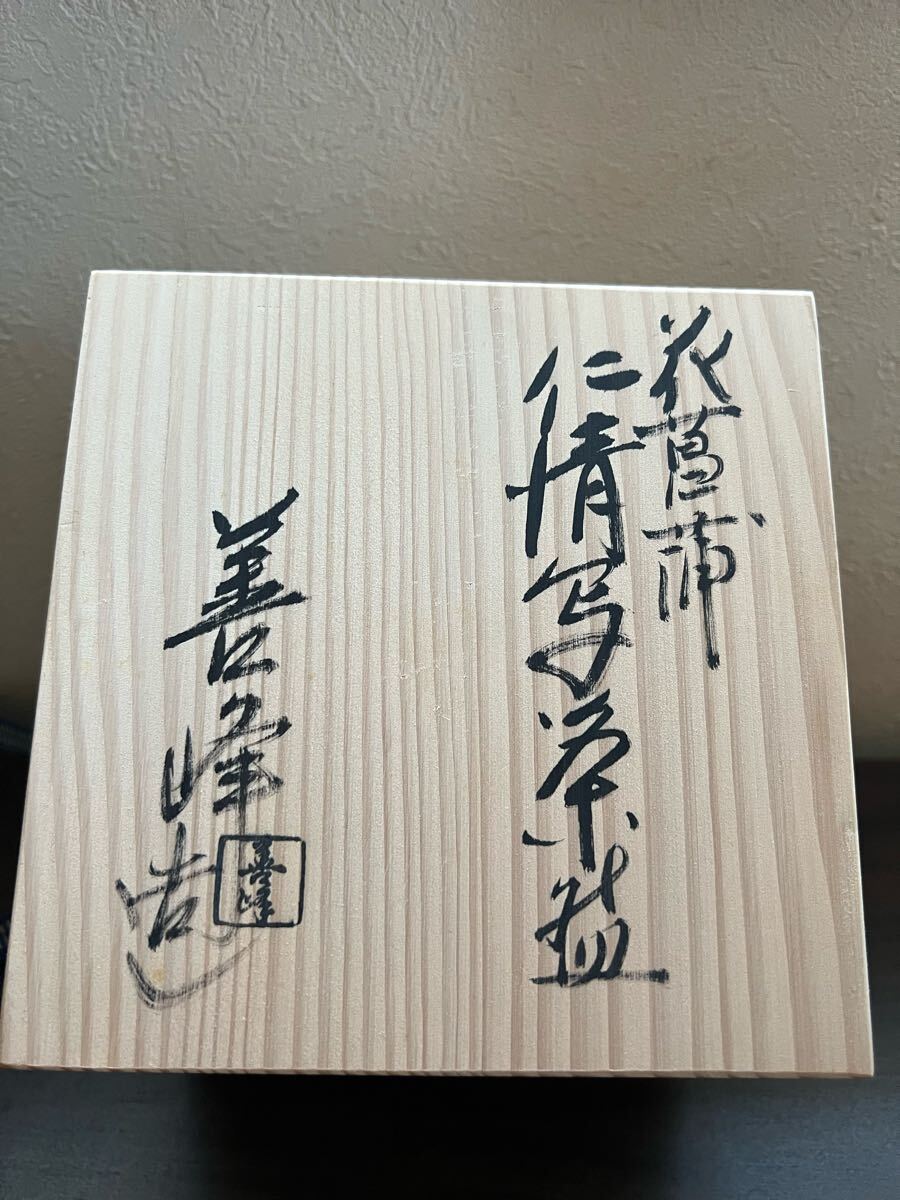 花菖蒲
仁清写茶盌
善峰造
善峰